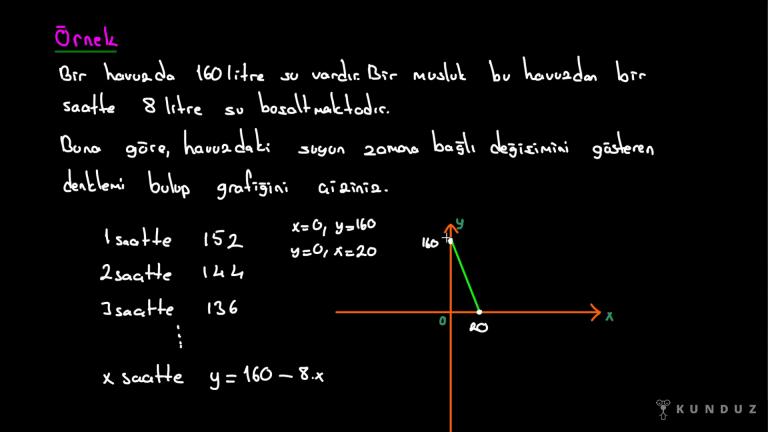 Örnek
Bir havuzda 160 litre su vardır. Bir musluk bu havuzdan bir
saatte 8 litre su boşaltmaktadır.
Buna göre, havuzdaki suyun zamana bağlı değişimini gösteren
denklemi bulup grafiğini çiziniz.
1 saatte 152
2 saatte 144
3 saatte 136
x saatte y = 160 - 8.x
x=0, y=160
y=0, x=20
y
160
0
20
x
KUNDUZ